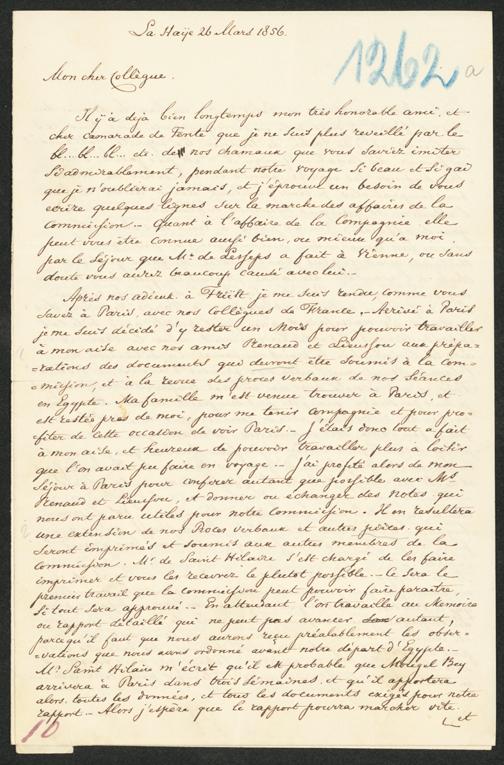 La Haije 26 Mars 1856.
1262 a
Mon cher Collègue.
Il y a deja bien longtemps mon très honorable ami, et
cher camarade de Tente que je ne suis plus reveillé par le
bl... bl... bl... de nos chamaux que vous saviez imiter
si admirablement, pendant notre voyage si beau et si gai
que je n'oublirai jamais, et j'éprouve un besoin de vous
ecrire quelques lignes sur la marche des affaires de la
commission.- Quant à l'affaire de la Compagnie elle
peut vous être connue aussi bien, ou mieux qu'a moi
par le séjour que Mr. de Lesseps a fait à Vienne, ou sans
doute vous aurez beaucoup causé avec lui.-
Après nos adieux à Triëst, je me suis rendu, comme vous
savez à Paris, avec nos Collègues de France.- Arrivé à Paris
je me suis décidé d'y rester un Mois pour pouvoir travailler
à mon aise avec nos amis Renaud et Lieussou aux prépa-
-rations des documents qui devront être soumis à la com-
-mission, et à la revue des proces verbaux de nos Séances
en Egypte. Ma famille m'est venue trouver à Paris, et
est restée pres de moi, pour me tenir Compagnie et pour pro-
fiter de cette occasion de voir Paris.- J'etais donc tout a fait
à mon aise, et heureux de pouvoir travailler plus a loisir
que l'on avait pu faire en voyage.- j'ai profité alors de mon
séjour à Paris pour conferer autant que possible avec Mrs.
Renaud et Lieussou, et donner ou échanger des Notes qui
nous ont paru utiles pour notre Commission. Il en resultera
une extension de nos Proces verbaux et autres pièces qui
seront imprimés et soumis aux autres membres de la
Commission. Mr. de Saint Hilaire s'est chargé de les faire
imprimer et vous les recevrez le plutot possible.- Ce sera le
premier travail que la commission peut pouvoir faire paraitre,
si tout sera approuvé.- En attendant l'on travaille au Memoire
ou rapport detaillé qui ne peut pas avancer autant,
parcequ'il faut que nous aurons reçu préalablement les obser-
-vations que nous avons ordonné avant notre départ d'Egypte.-
Mr. Saint Hilaire m'écrit qu'il est probable que Mougel Bey
arrivera à Paris dans trois Semaines, et qu'il apportera
alors toutes les données, et tous les documents exigés pour notre
rapport.- Alors j'espère que le rapport pourra marcher vite.
et
10